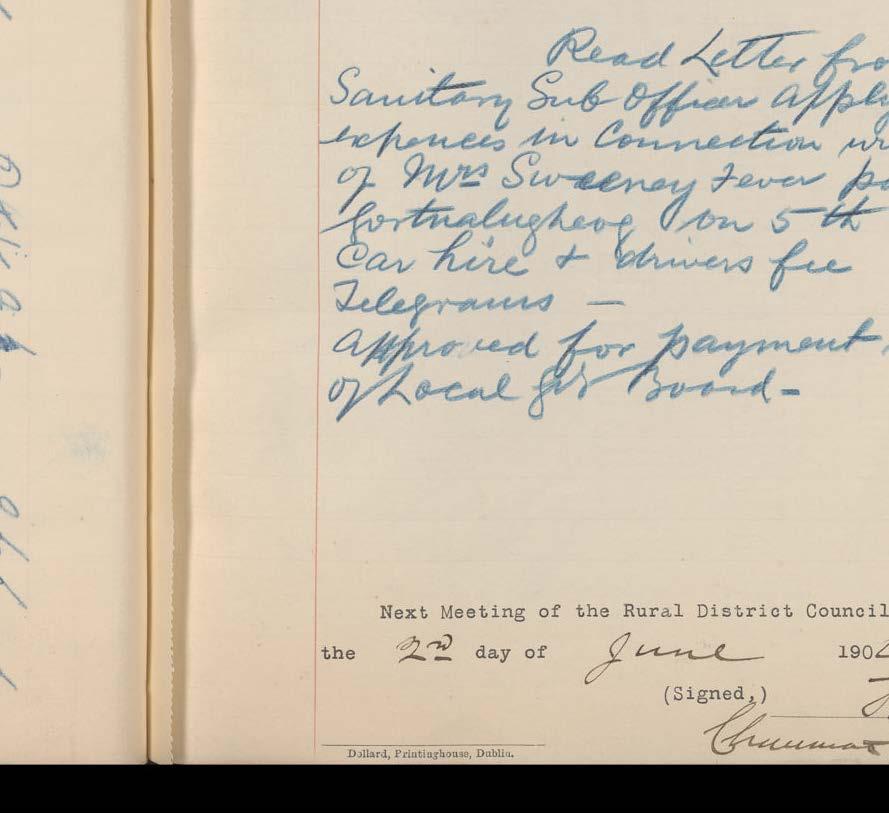 Read Letter fro
Sanitary Sub Officer apply
expences in Connection
of Mrs Sweeney Fever pa
Gortnalugheog on 5th
Car hire & drivers fee
Telegrams —
Approved for payment
of Local Gvt Board -
Next Meeting of the Rural District Council
the 2nd day of June 190
(Signed,)
Chairman
Dollard, Printinghouse, Dublin.